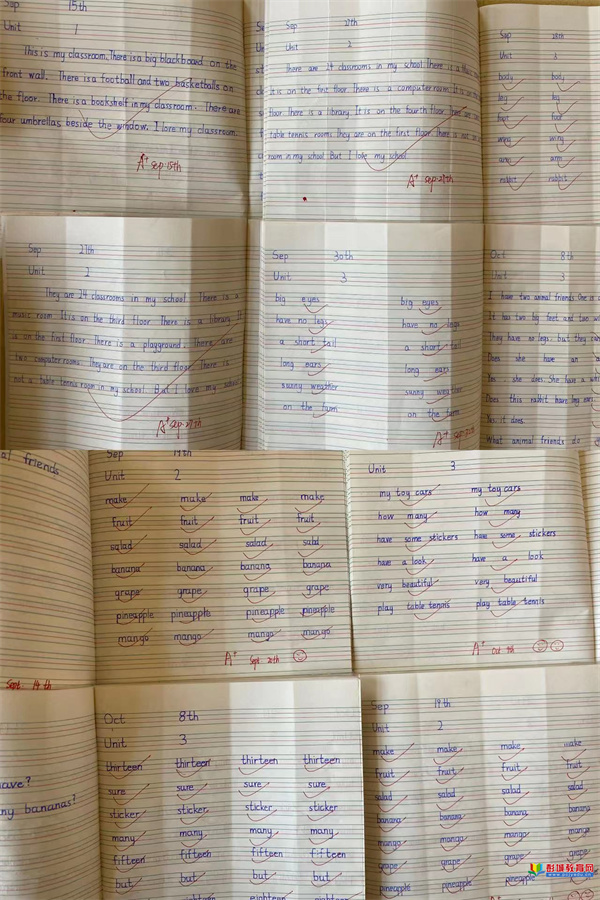 Sep 15th
Unit 1
This is my classroom. There is a big blackboard on the
front wall. There is a football and two basketballs on
the floor. There is a bookshelf in my classroom. There are
four umbrellas beside the window. I love my classroom.
A+ Sep. 15th
Sep 27th
Unit 2
There are 24 classrooms in my school. There is a
It is on the first floor. There is a computer room. It is on
floor. There is a library. It is on the fourth floor. There are
table tennis rooms. They are on the first floor. There is not
room in my school. But I love my school.
A+ Sep. 27th
Sep
Unit 3
body body
leg leg
foot foot
wing wing
arm arm
rabbit rabbit
Sep 27th
Unit 2
They are 24 classrooms in my school. There is a
music room. It is on the third floor. There is a library. It
is on the first floor. There is a playground. There are
two computer rooms. They are on the third floor. There is
not a table tennis room in my school. But I love my school.
A+ Sep. 27th
Sep 30th
Unit 3
big eyes big eyes
have no legs have no legs
a short tail a short tail
long ears long ears
sunny weather sunny weather
on the farm on the farm
A+
Oct 8th
Unit 3
I have two animal friends. One is
It has two big feet and two
They have no legs. but they can
Does she have an
Yes. she does. She has a
Does this rabbit have long ears
Yes. it does.
What animal friends do
al friends
Sept. 14th
Sep 19th
Unit 2
make make make make
fruit fruit fruit fruit
salad salad salad salad
banana banana banana banana
grape grape grape grape
pineapple pineapple pineapple pineapple
mango mango mango mango
A+ Sept 20th
Unit 3
my toy cars my toy cars
how many how many
have some stickers have some stickers
have a look have a look
very beautiful very beautiful
play table tennis play table tennis
A+ Oct 9th
have?
ny bananas?
Oct 8th
Unit 3
thirteen thirteen thirteen thirteen
sure sure sure sure
sticker sticker sticker sticker
many many many many
fifteen fifteen fifteen fifteen
but but but but
eighteen eighteen eighteen
Sep 19th
Unit 2
make make make make
fruit fruit fruit fruit
salad salad salad salad
banana banana banana banana
mango mango mango mango
grape grape grape grape
pineapple pineapple pineapple
彭城教育网